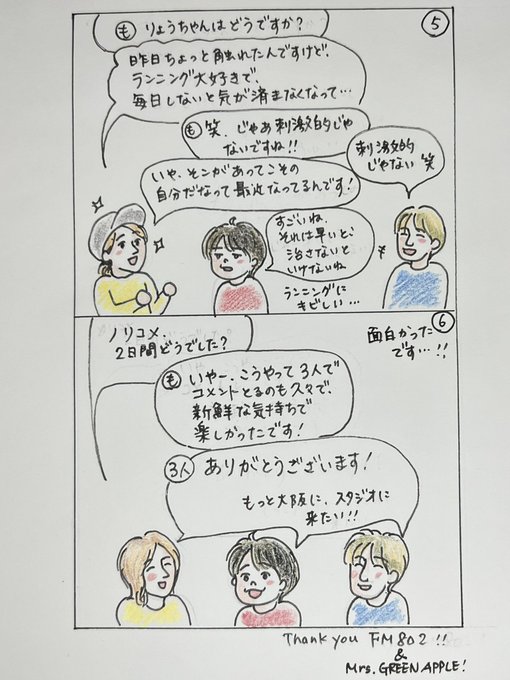 ⑤
も りょうちゃんはどうですか？
昨日ちょっと触れたんですけど、
ランニング大好きで、
毎日しないと気が済まなくなって…
も 笑、じゃあ刺激的じゃ
ないですね!!
刺激的
じゃない 笑
いや、そこがあってこその
自分だなって最近なってるんです!
すごいね、
それは早いと、
治さないと
いけないね
ランニングに
キビしい…
⑥
ノリコメ、
2日間どうでした？
面白かった
です…!!
も いやー、こうやって3人で
コメントとるのも久々で、
新鮮な気持ちで
楽しかったです!
3人 ありがとうございます!
もっと大阪に、スタジオに
来たい!!
Thank you FM802!!
&
Mrs. GREEN APPLE!